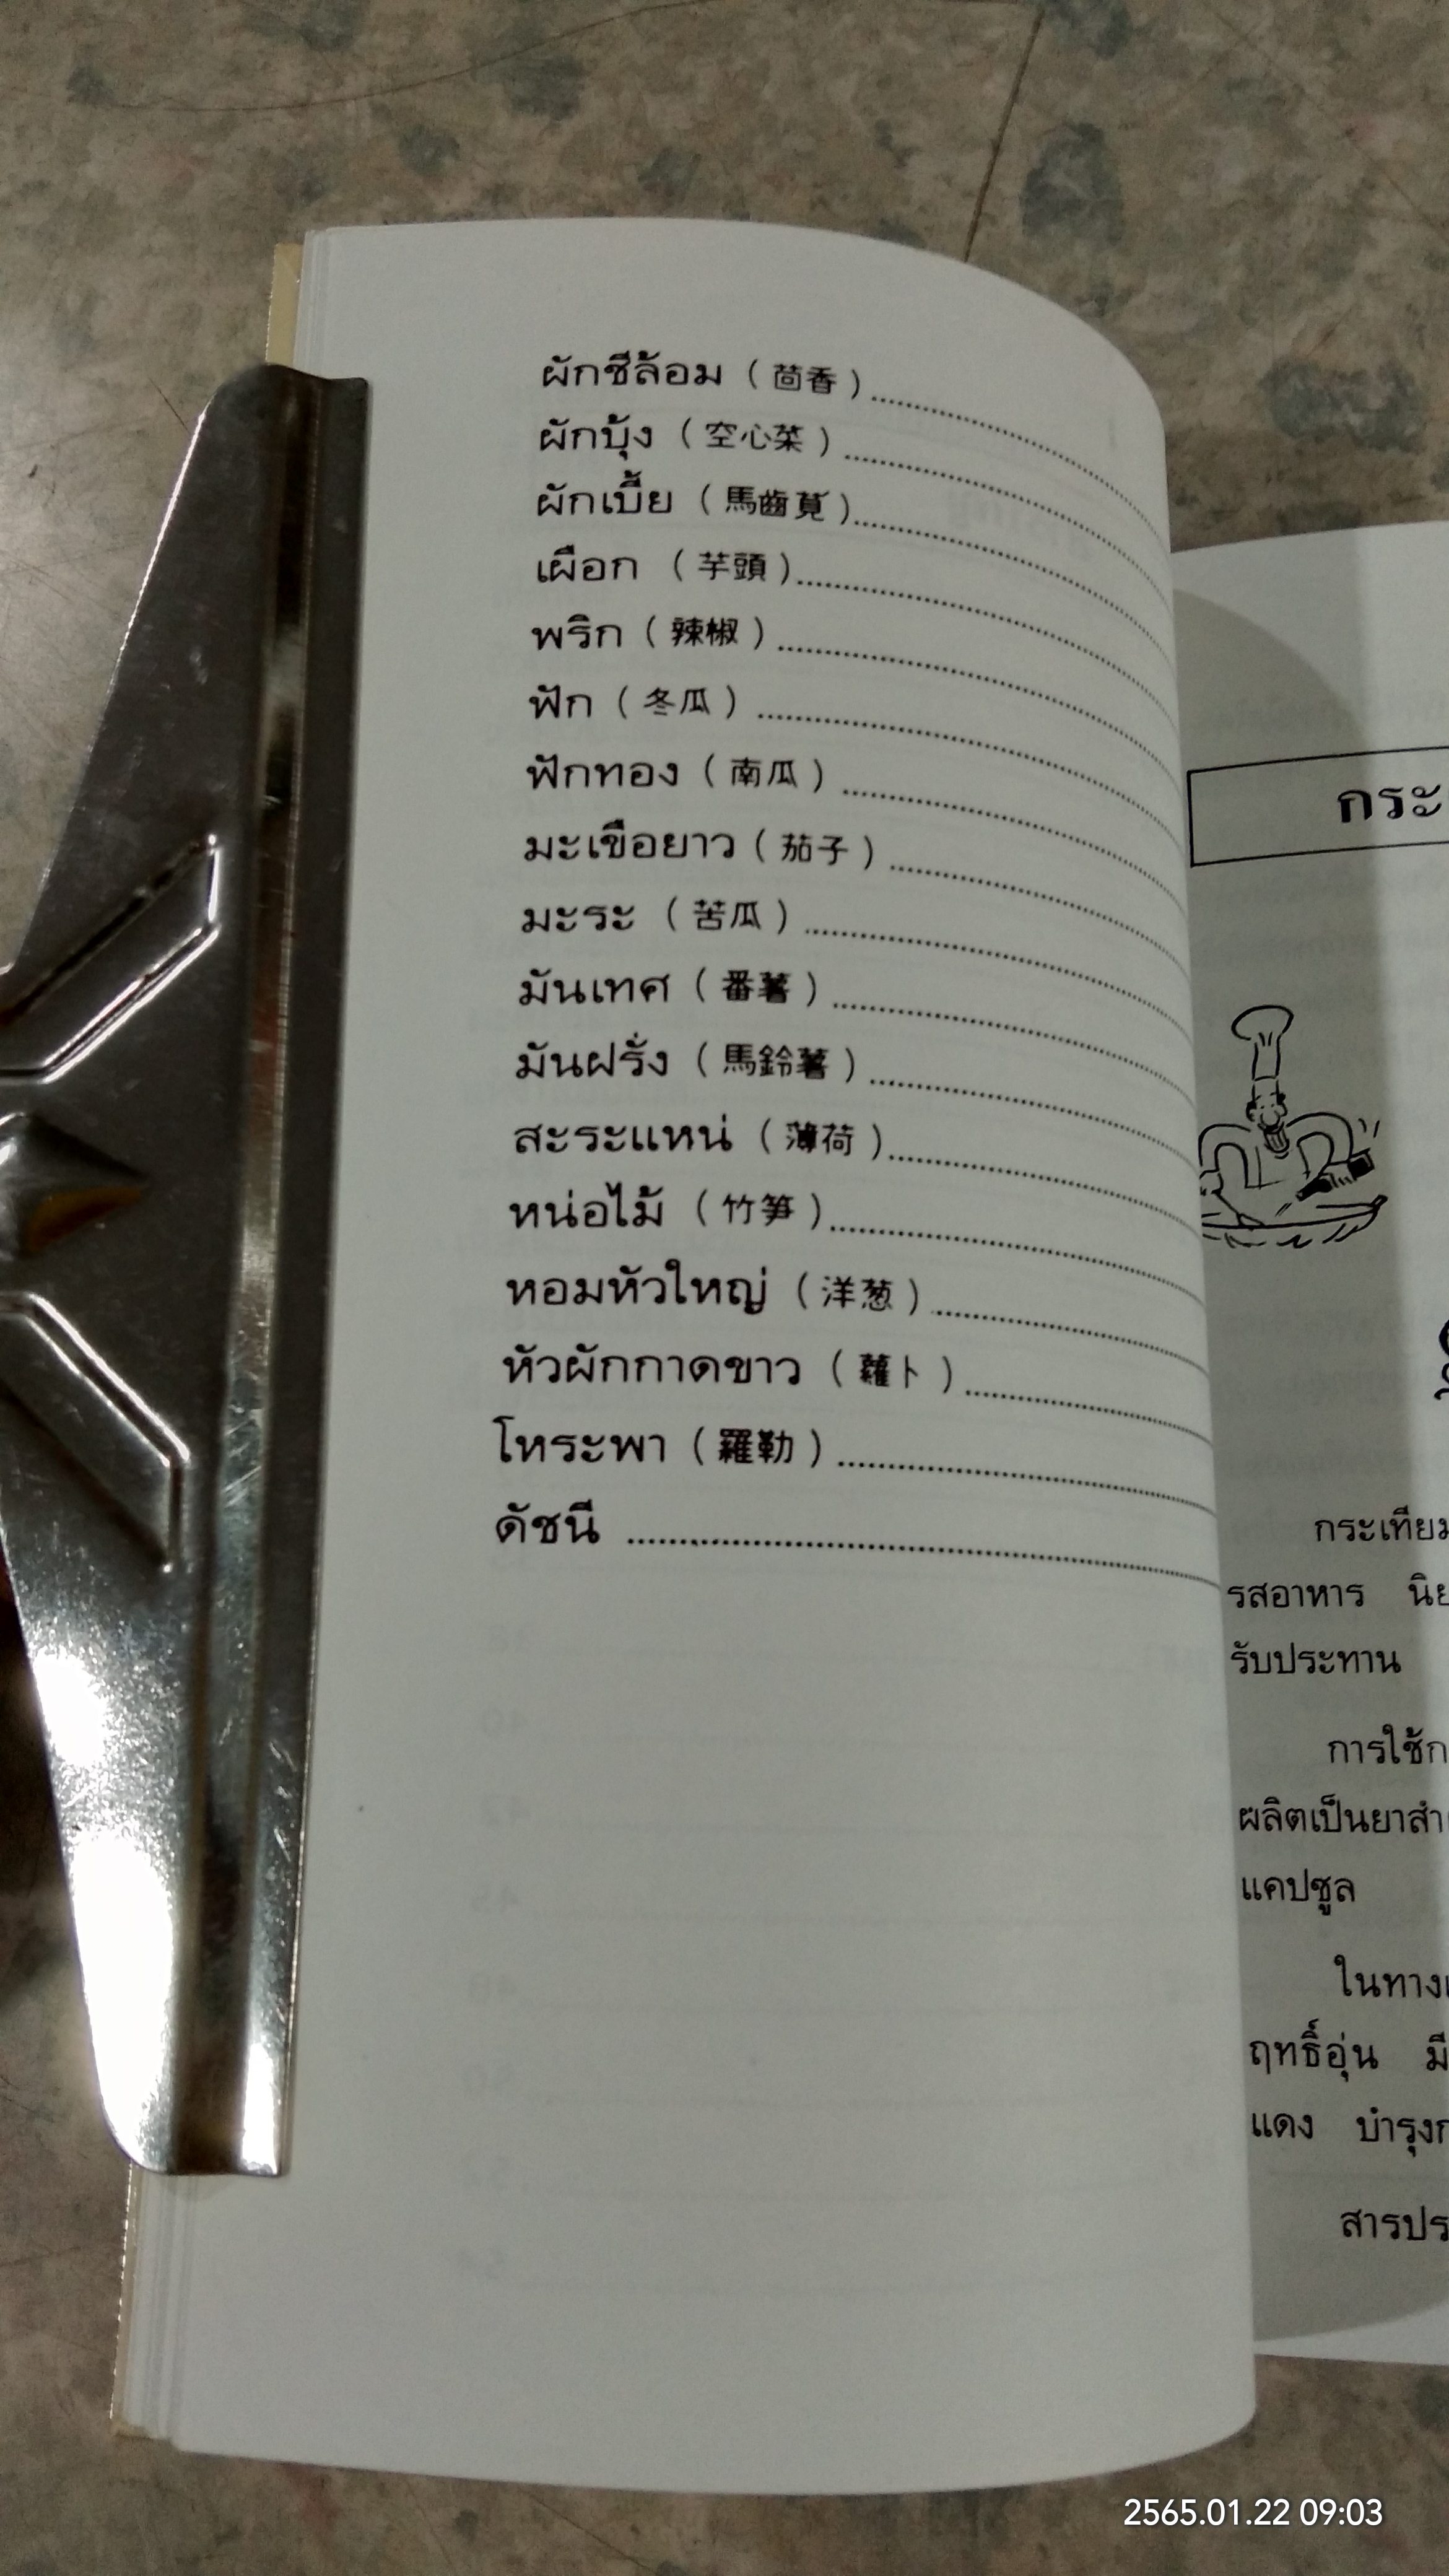 ผักชีล้อม ( 茴香 )
ผักบุ้ง ( 空心菜 )
ผักเบี้ย ( 馬齒莧 )
เผือก ( 芋頭 )
พริก ( 辣椒 )
ฟัก ( 冬瓜 )
ฟักทอง ( 南瓜 )
มะเขือยาว ( 茄子 )
มะระ ( 苦瓜 )
มันเทศ ( 番薯 )
มันฝรั่ง ( 馬鈴薯 )
สะระแหน่ ( 薄荷 )
หน่อไม้ ( 竹笋 )
หอมหัวใหญ่ ( 洋葱 )
หัวผักกาดขาว ( 蘿卜 )
โหระพา ( 羅勒 )
ดัชนี
กระ
กระเทียม
รสอาหาร
รับประทาน
การใช้ก
ผลิตเป็นยาสำ
แคปซูล
ในทาง
ฤทธิ์อุ่น มี
แดง บำรุง
สารปร
2565.01.22 09:03